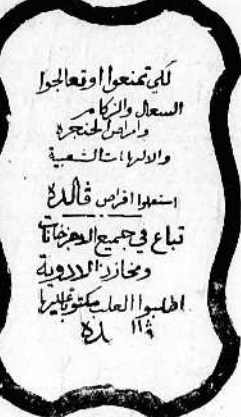 لكي تمنعوا او تعالجوا
السعال والزكام
وامراض الحنجرة
والالتهابات الشعبية
استعملوا اقراص ڤالده
تباع في جميع الاجزخانات
ومخازن الادوية
اطلبوا العلب مكتوبا عليها
ڤالده